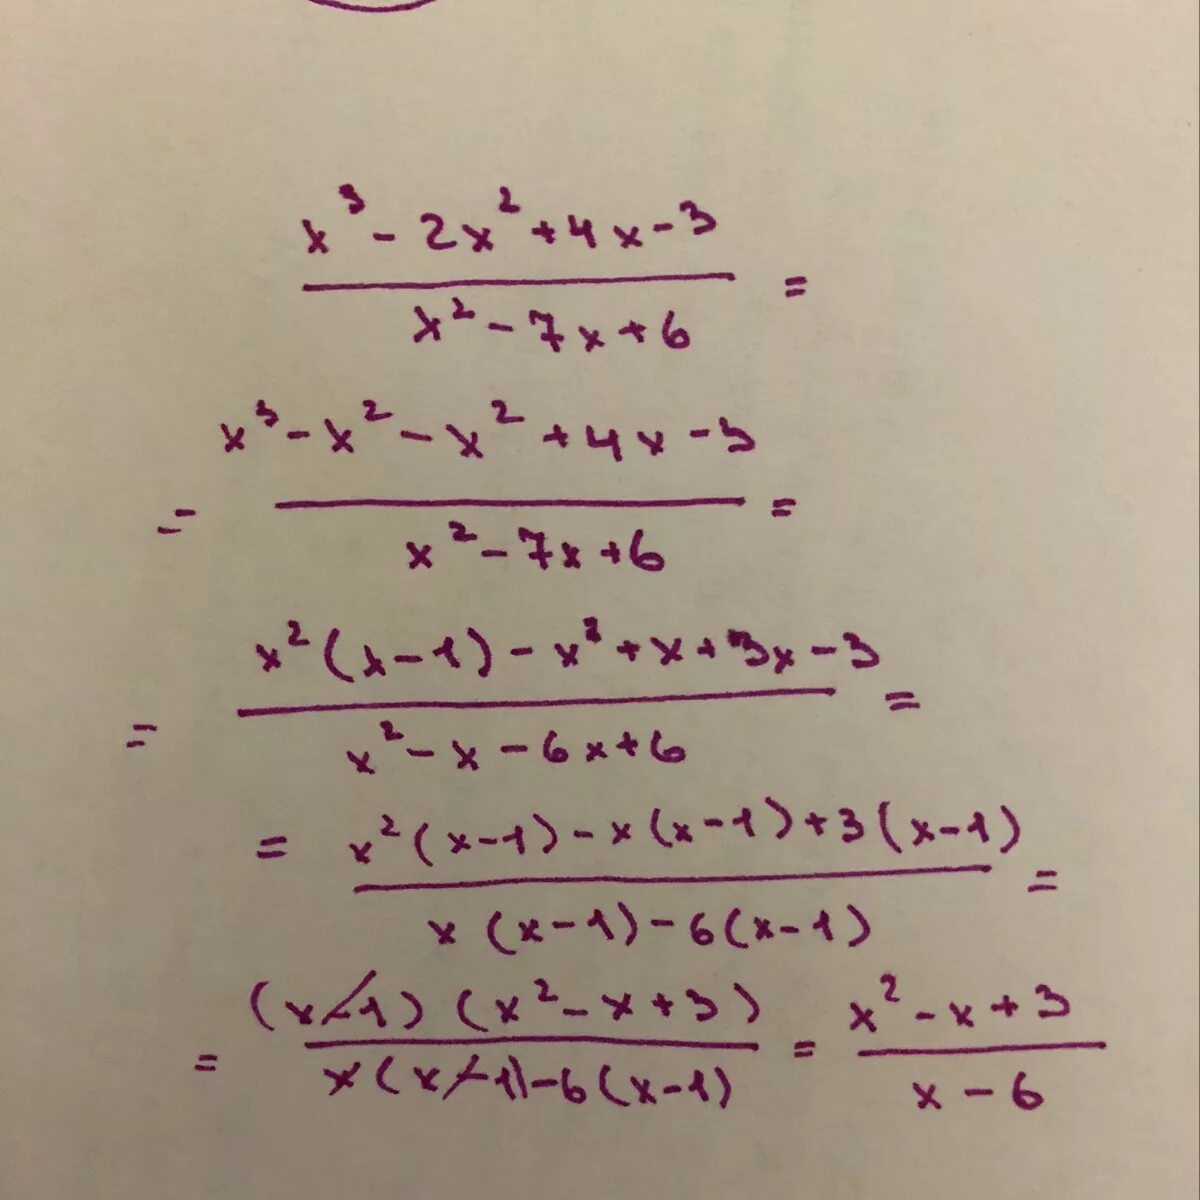 x³ - 2x² + 4x - 3
x² - 7x + 6 =
x³ - x² - x² + 4x - 3
= x² - 7x + 6 =
x²(x-1) - x² + x + 3x - 3
= x² - x - 6x + 6 =
= x²(x-1) - x(x-1) + 3(x-1)
x(x-1) - 6(x-1) =
(x-1)(x² - x + 3) = x² - x + 3
= x(x-1) - 6(x-1) x - 6